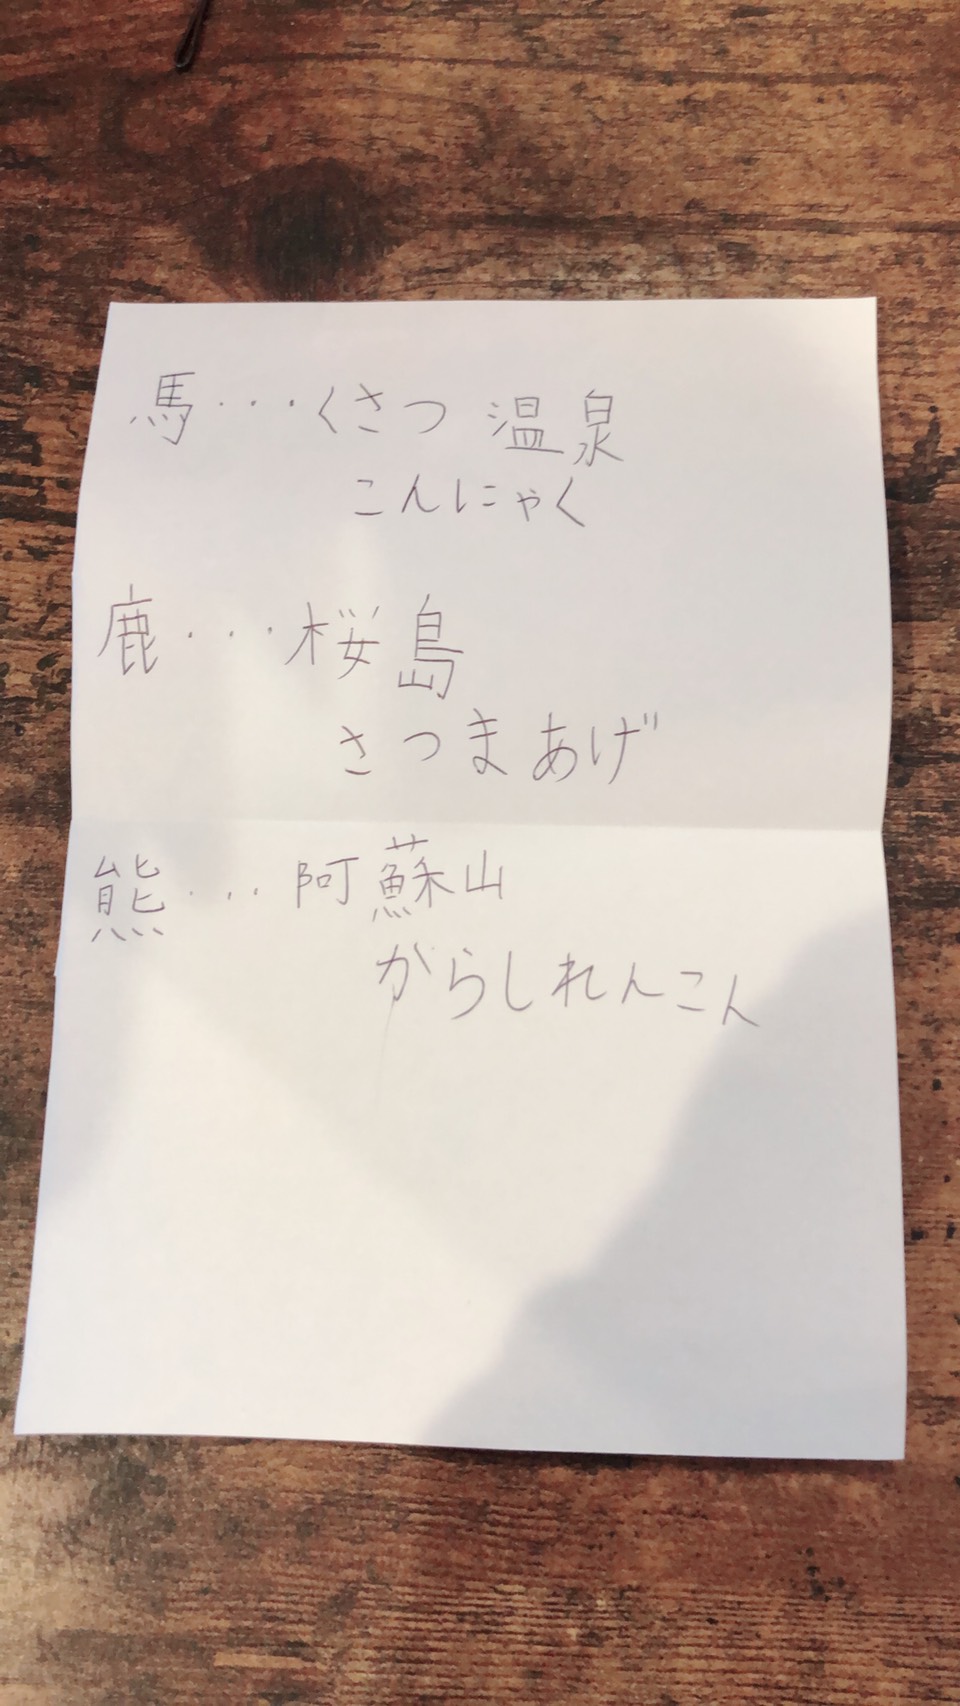 馬・・・くさつ 温泉
こんにゃく
鹿・・・桜島
さつまあげ
熊・・・阿蘇山
からしれんこん